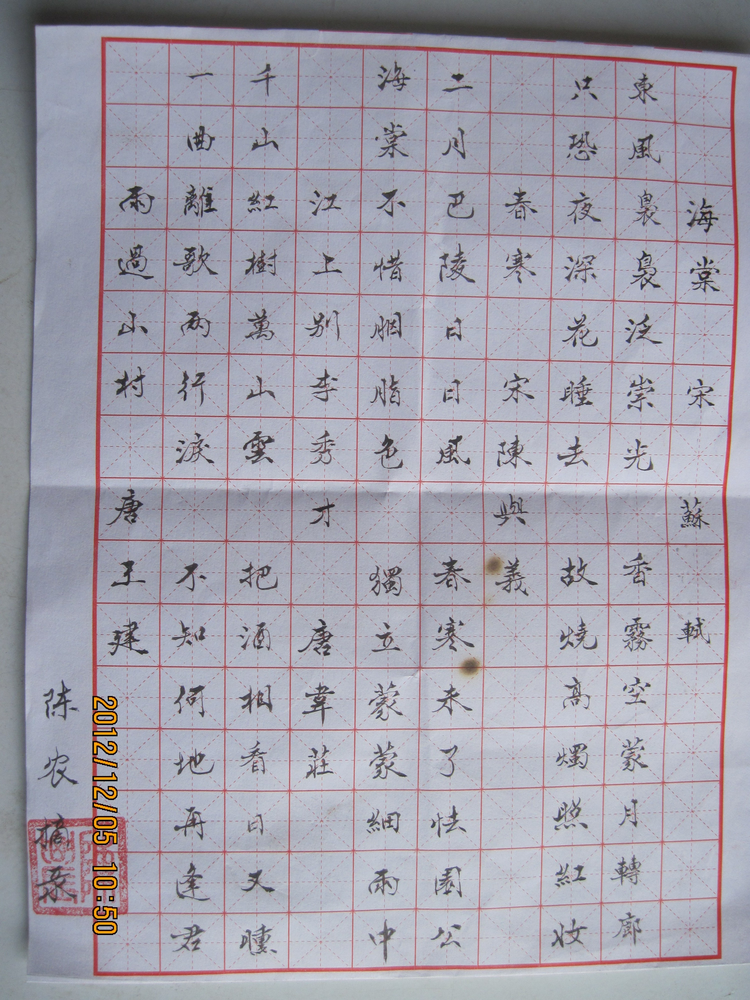 海棠 宋 蘇 軾
東風裊裊泛崇光 香霧空蒙月轉廊
只恐夜深花睡去 故燒高燭照紅妝
春寒 宋陳與義
二月巴陵日日風 春寒未了怯園公
海棠不惜胭脂色 獨立蒙蒙細雨中
江上別李秀才 唐韋莊
千山紅樹萬山雲 把酒相看日又曛
一曲離歌兩行淚 不知何地再逢君
雨過山村 唐王建
陈农摘录
2012/12/05 10:50